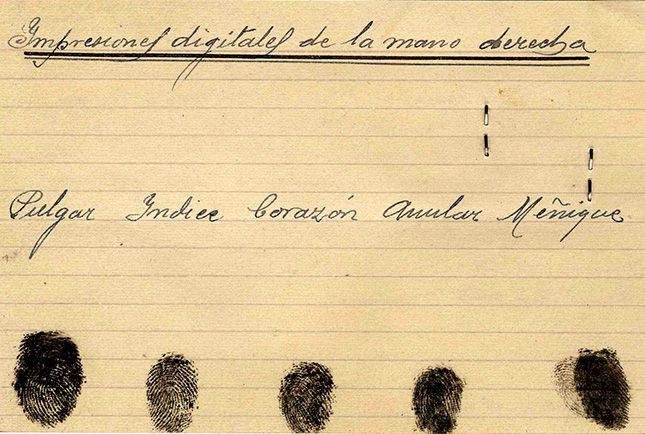 Impresiones digitales de la mano derecha
Pulgar Indice Corazón Anular Méñique